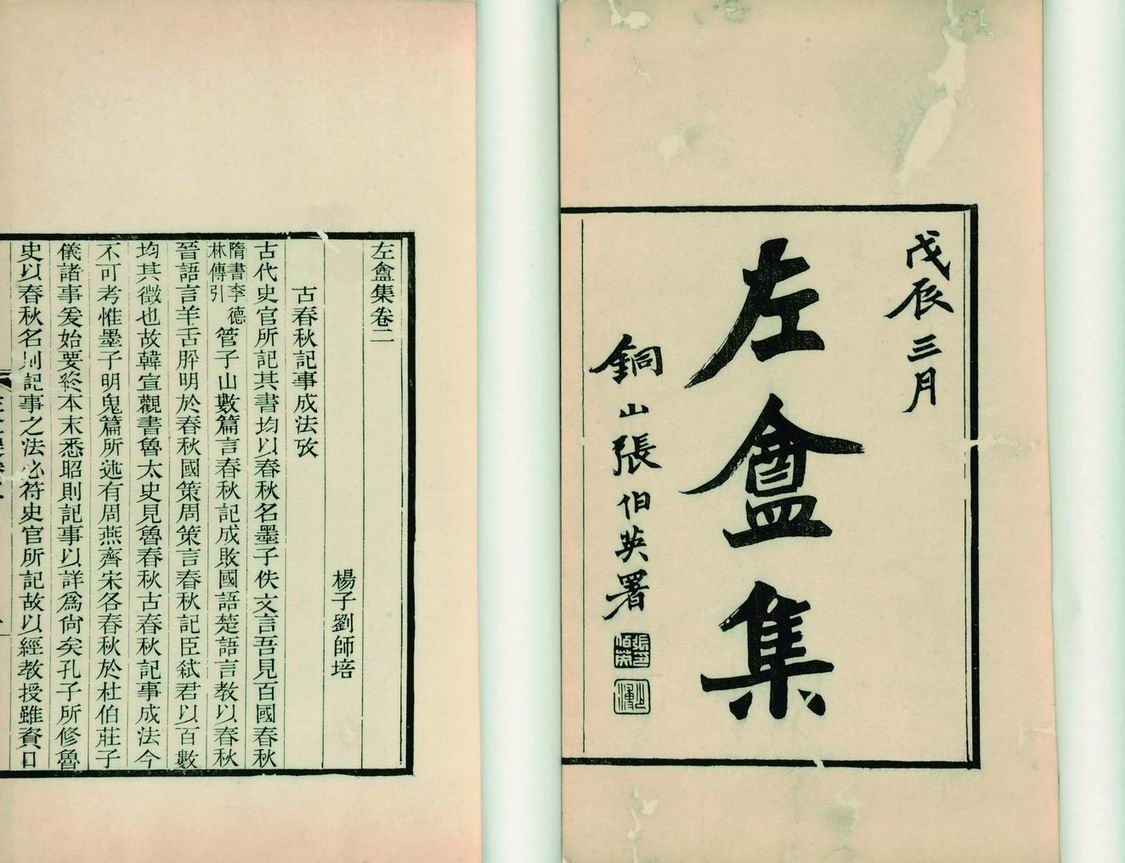 戊辰三月
左盦集
銅山張伯英署
左盦集卷二
楊子劉師培
古春秋記事成法攷
古代史官所記其書均以春秋名墨子佚文言吾見百國春秋
隋書李德
林傳引
管子山數篇言春秋記成敗國語楚語言教以春秋
晉語言羊舌肸明於春秋國策周策言春秋記臣弒君以百數
均其徵也故韓宣觀書魯太史見魯春秋古春秋記事成法今
不可考惟墨子明鬼篇所述有周燕齊宋各春秋於杜伯莊子
儀諸事爰始要終本末悉昭則記事以詳爲尙矣孔子所修魯
史以春秋名則記事之法必符史官所記故以經教授雖資口